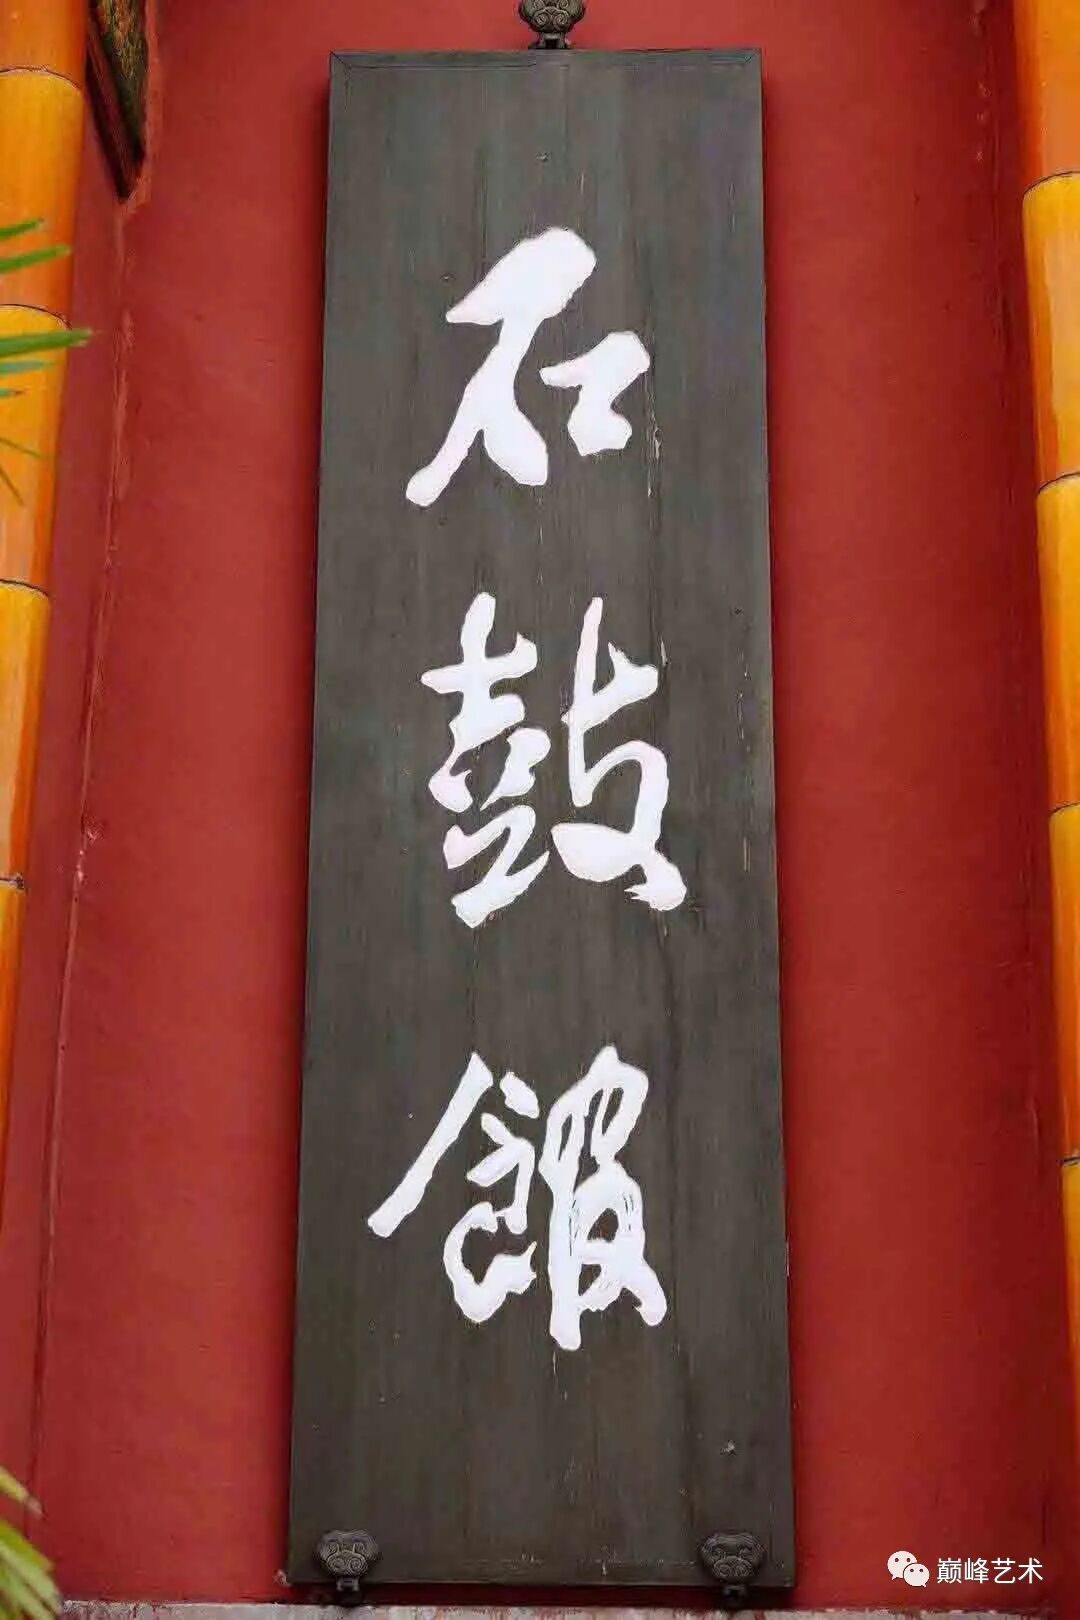 石鼓館
巅峰艺术